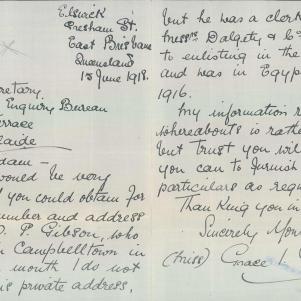 Elswick
Gresham St.
East Brisbane
Queensland
15 June 1918.
cretary
Enquiry Bureau
errace
laide
dam –
would be very
you could obtain for
umber and address
P. Gibson, who
n Campbelltown in
month I do not
is private address,
but he was a clerk
Messrs Dalgety & Co
to enlisting in the
and was in Egyp
1916.
My information r
whereabouts is rathe
but trust you wil
you can to furnish
particulars as requ
Thanking you in
Sincerely You
(Miss) Grace L.